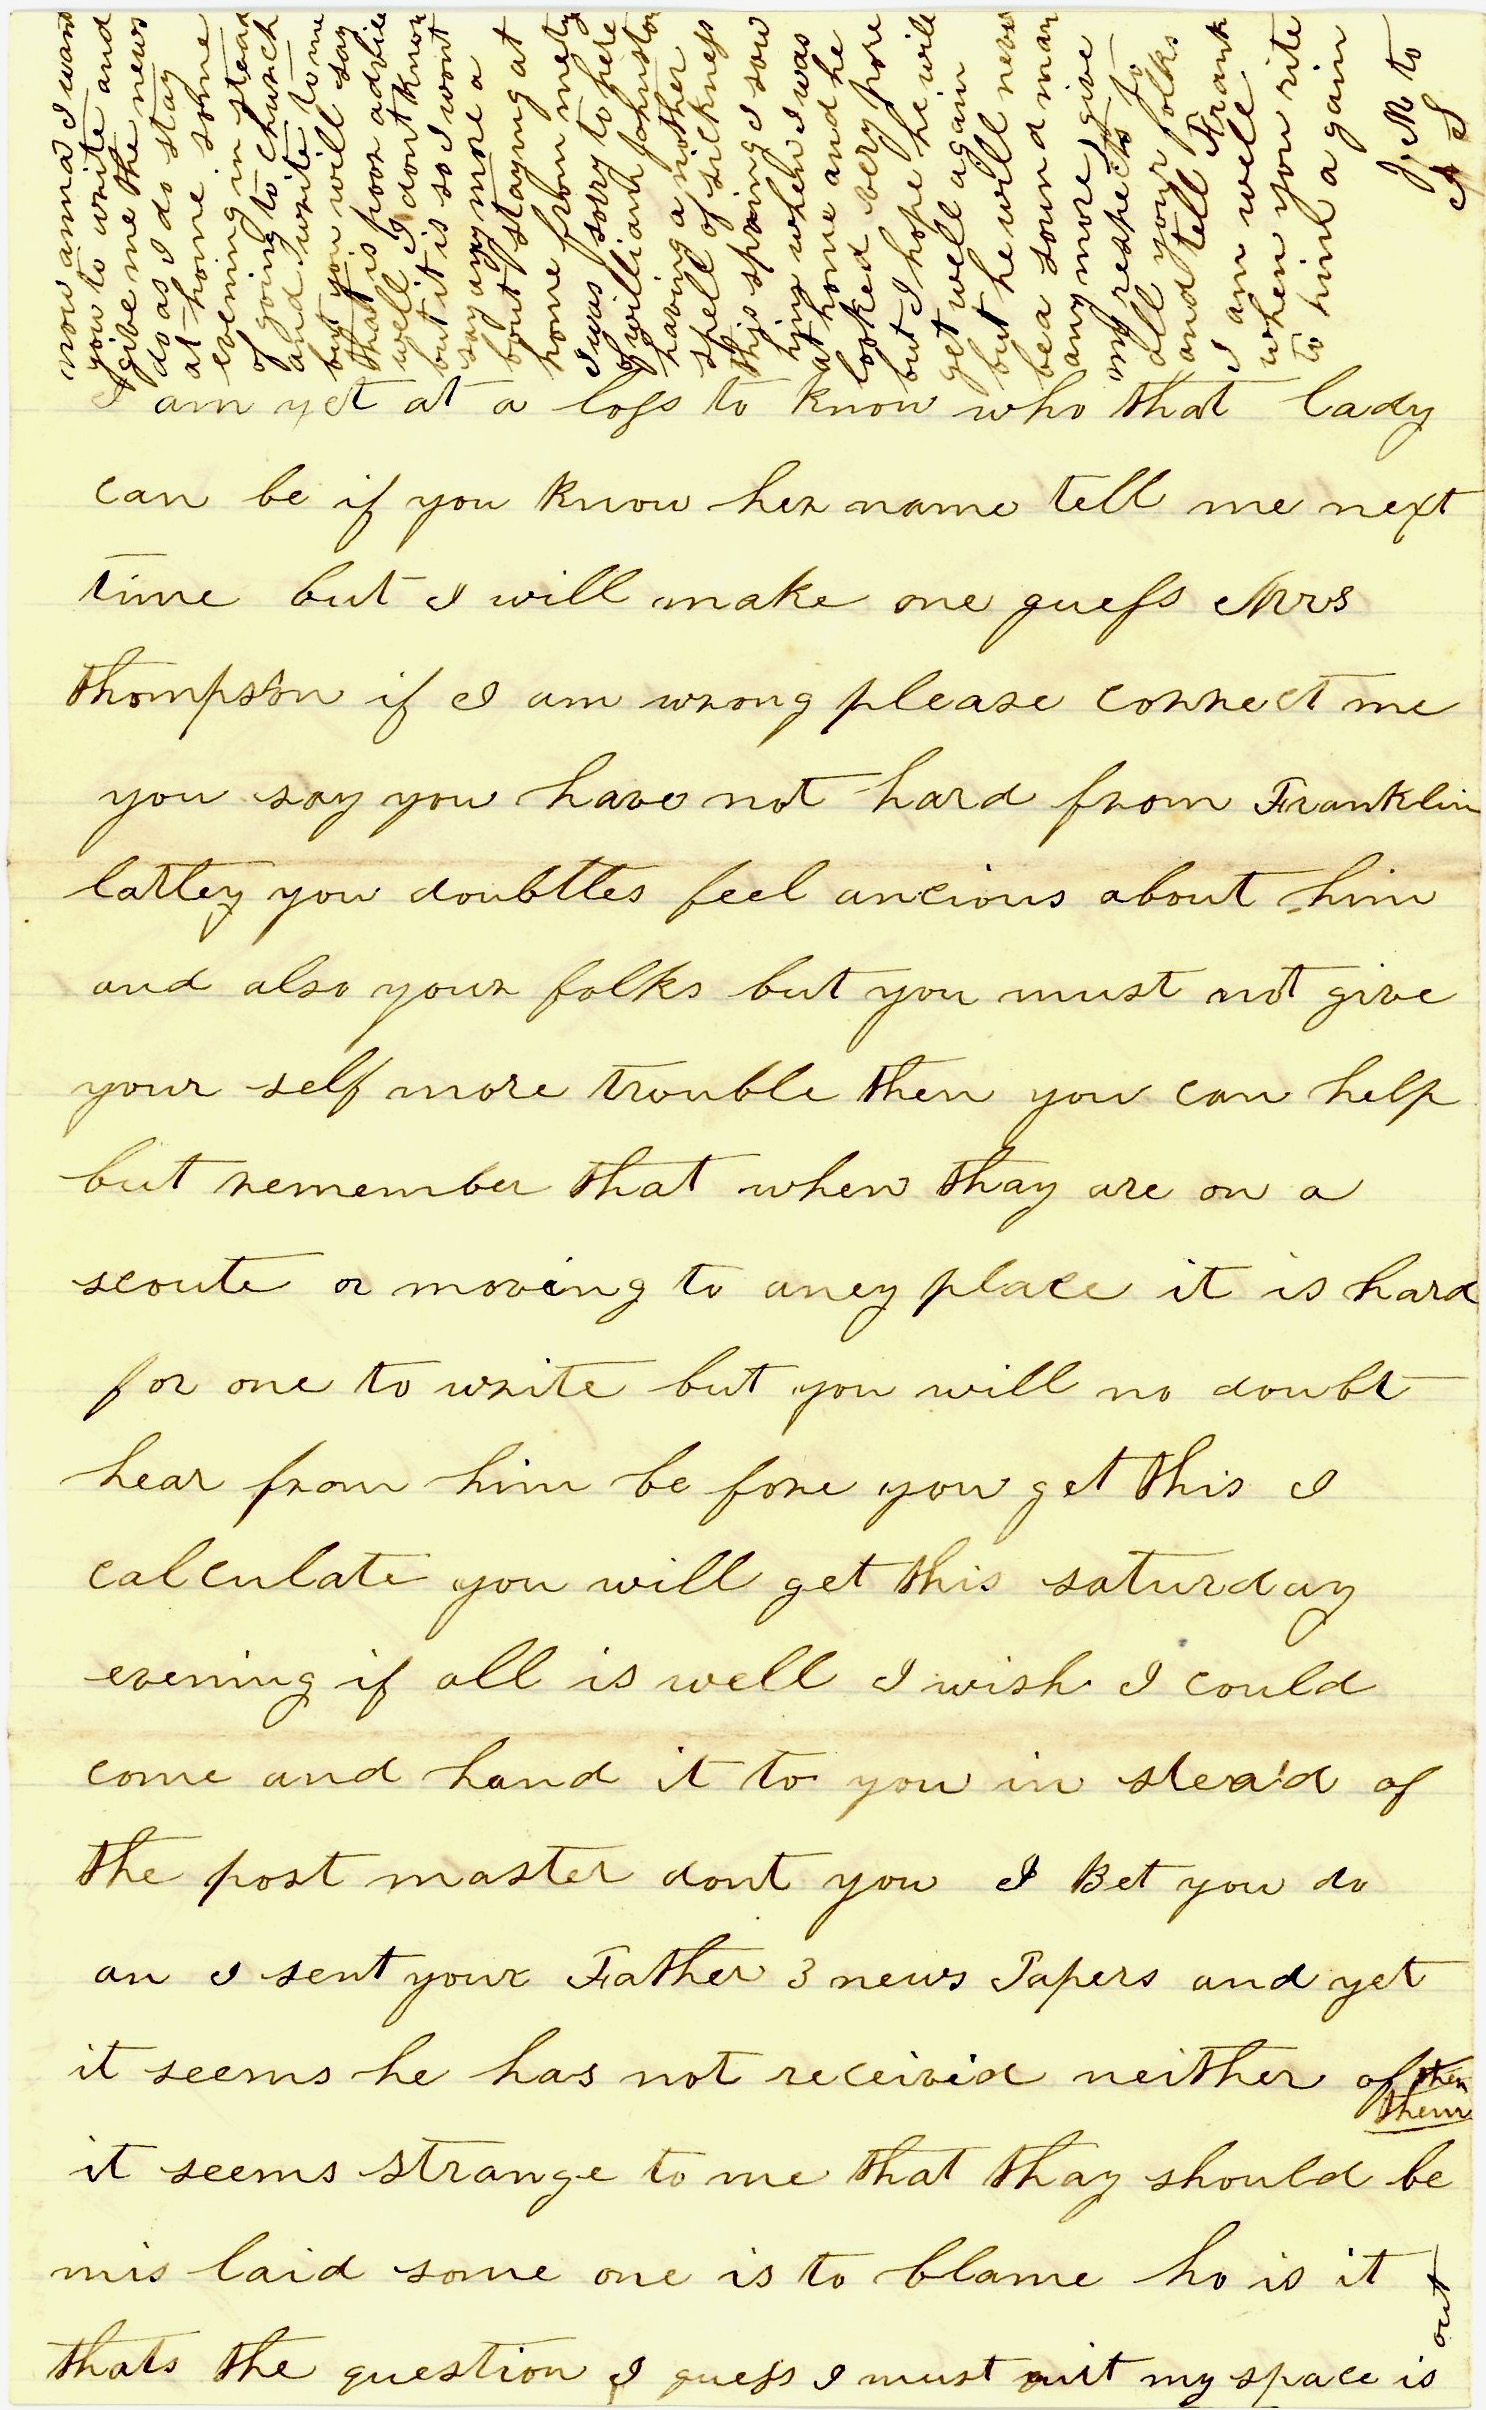 I am yet at a loss to know who that lady
can be if you know her name tell me next
time but I will make one guess Mrs
thompson if I am wrong please correct me
you say you have not hard from Franklin
lattey you doubttes feel ancious about him
and also your folks but you must not give
your self more trouble then you can help
but remember that when thay are on a
scoute or moving to aney place it is hard
for one to write but you will no doubt
hear from him be fore you get this I
calculate you will get this saturday
evening if all is well I wish I could
come and hand it to you in stead of
the post master dont you I Bet you do
an I sent your Father 3 news Papers and yet
it seems he has not receivid neither of then
them
it seems strange to me that thay should be
mis laid some one is to blame ho is it
thats the question I guess I must quit my space is
out
now anna I want
you to write and
give me the news
do as I do stay
at home some
evening in stead
of going to church
and write to me
but you will say
that is poor advice
well I dont know
but it is so I wont
say any more a
bout staying at
home from meting
I was sorry to here
of william Johnston
having a nother
spell of sickness
this spring I saw
him when I was
at home and he
looked very pore
but I hope he will
get well again
but he will never
be a sound man
any more give
my respects to
all your folks
and tell Frank
I am well
when you rite
to him again
J M to
A S